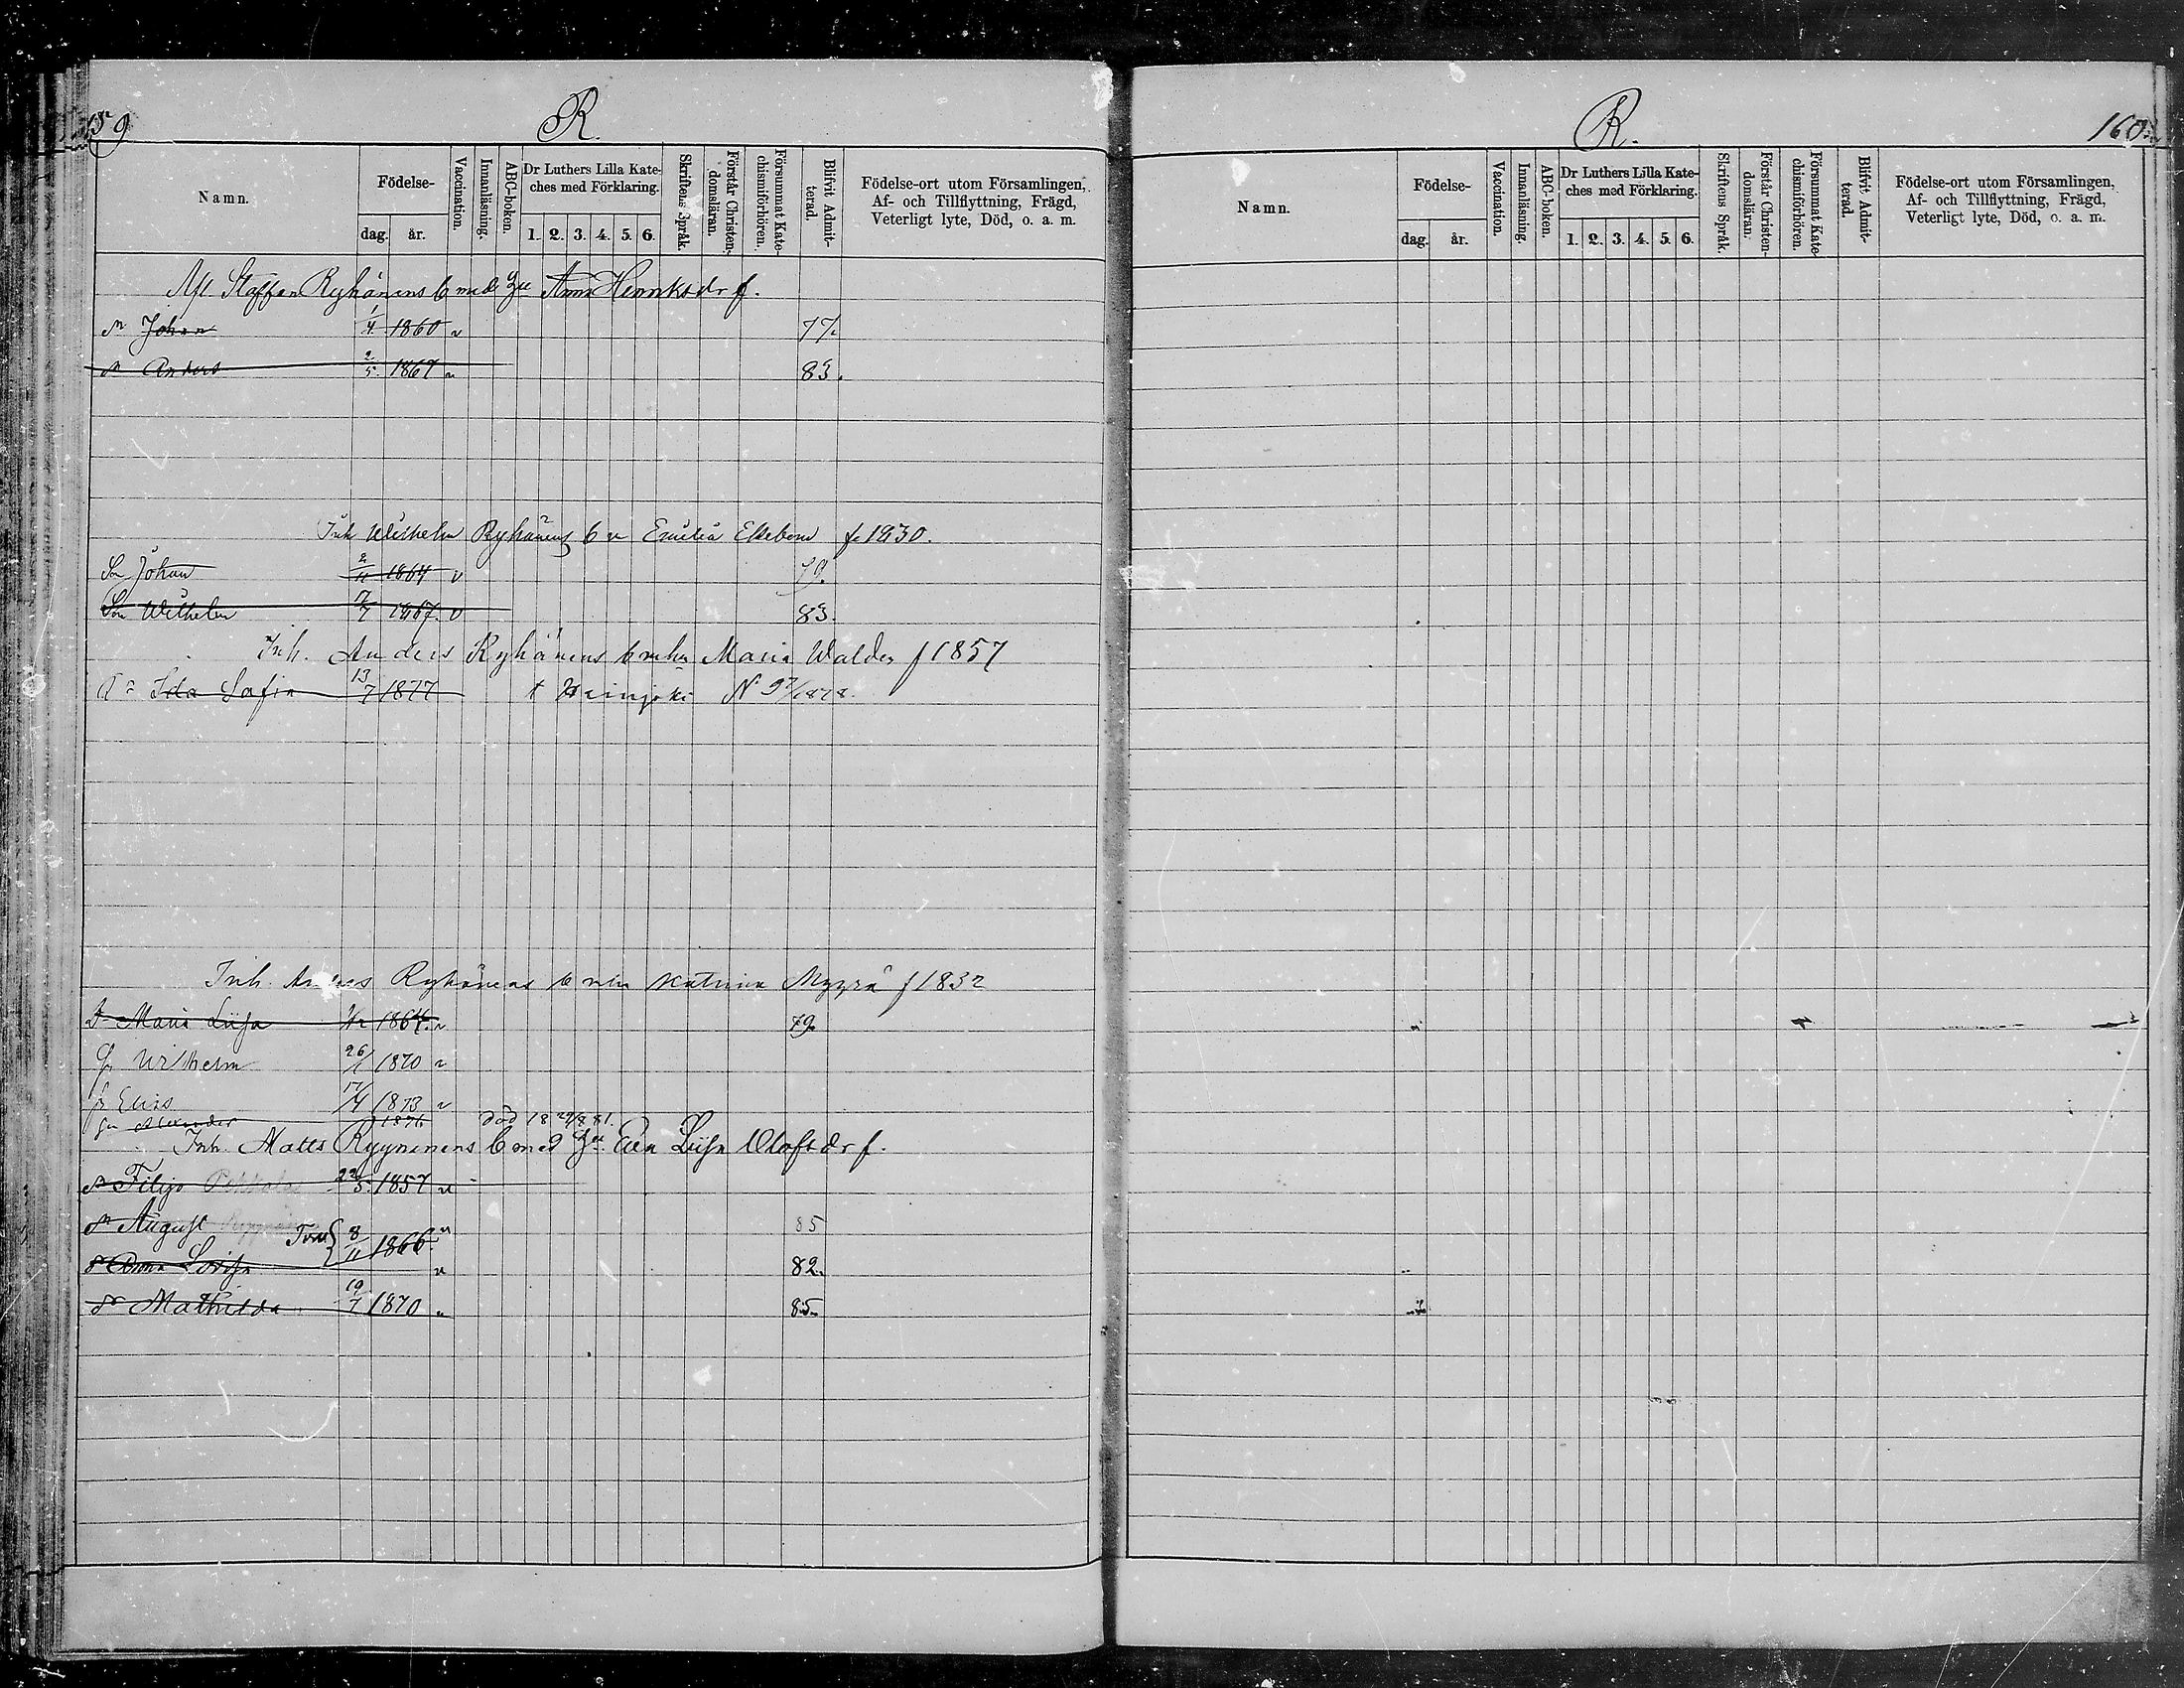 159
R.
Namn.
Födelse-
dag.
år.
Vaccination.
Innanläsning.
ABC-boken.
Dr Luthers Lilla Kate-
ches med Förklaring.
1. 2. 3. 4. 5. 6.
Skriftens Språk.
Förstår Christen-
domsläran.
Försummat Kate-
chismiförhören.
Blifvit Admit-
terad.
Födelse-ort utom Församlingen,
Af- och Tillflyttning, Frägd,
Veterligt lyte, Död, o. a. m.
Staffan Ryhänens b med Anna Henriksdr f.
Johan 1/4 1860 77.
Anders 2/5 1867 83.
Inh Wilhelm Ryhänens b m Emilia Ekebom f. 1830.
Son Johan 2/11 1864 v 79.
Son Wilhelm 17/7 1867. v 83.
Inh. Anders Ryhänens b m hu Maria Walden f 1857
Ida Sofia 13/7 1877 t Heinjoki N 97/1878.
Inh. Anders Ryhänens b m hu Katrina Myyrä f 1832
Dr Maria Liisa 1864. 79.
Wilhelm 26/1 1870
Elis 17/4 1873
Alexander 1876 död 18 29/8 81.
Inh. Matts Ryynänens b med Eva Liisa Olofsdr f.
Filip Pekkola 22/5. 1857
August 85
8/11 1866.
Anna Lovisa 82.
Mathilda 19/7 1870 85.
R.
160.
Namn.
Födelse-
dag.
år.
Vaccination.
Innanläsning.
ABC-boken.
Dr Luthers Lilla Kate-
ches med Förklaring.
1. 2. 3. 4. 5. 6.
Skriftens Språk.
Förstår Christen-
domsläran.
Försummat Kate-
chismiförhören.
Blifvit Admit-
terad.
Födelse-ort utom Församlingen,
Af- och Tillflyttning, Frägd,
Veterligt lyte, Död, o. a. m.